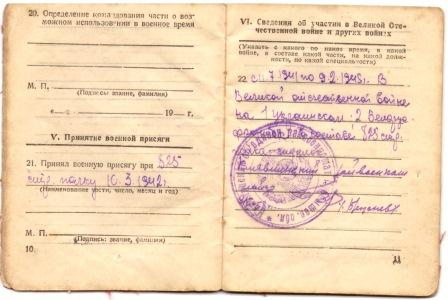 20. Определение командования части о воз-
можном использовании в военное время
М. П.
(Подпись: звание, фамилия)
« » 19 — г.
V. Принятие военной присяги
21. Принял военную присягу при 525
стр. полку 10.3 1942г.
(Наименование части, число, месяц и год)
М. П.
(Подпись: звание, фамилия)
10.
VI. Сведения об участии в Великой Оте-
чественной войне и других войнах
(Указать с какого по какое время, в какой
войне, в составе какой части, на какой долж-
ности, по какой специальности)
22. с 11.7 1941 по 9.2 1945г. В
Великой отечественной войне
на 1 Украинском 2
составе 525 стр.
11